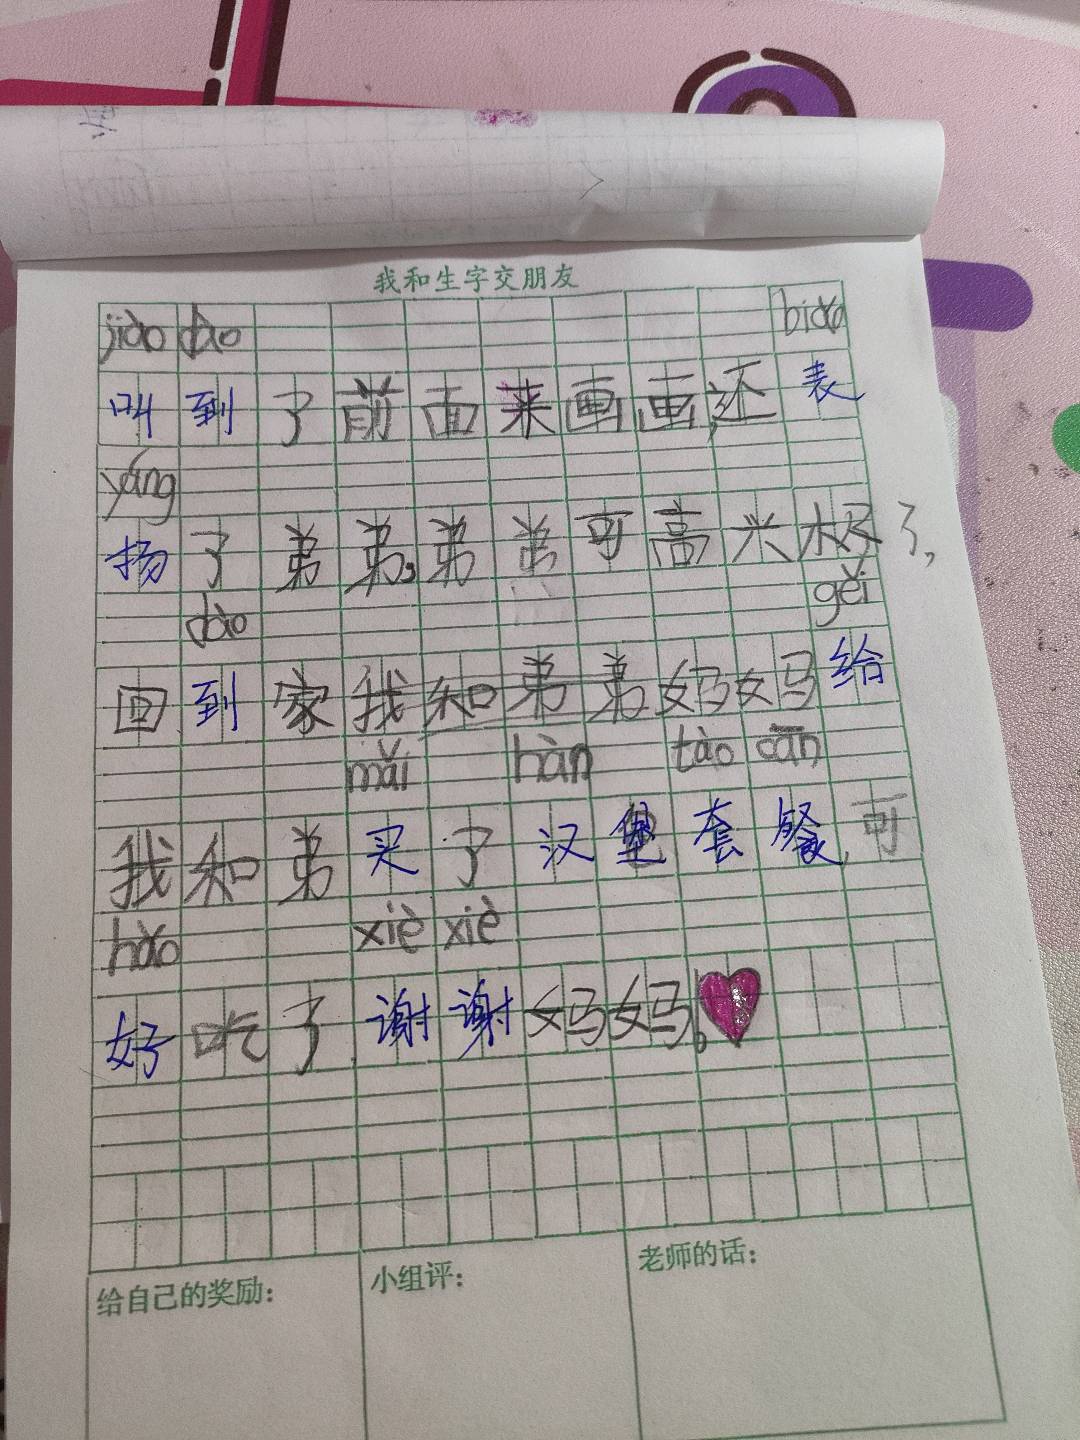 我和生字交朋友
jiào dào biǎo
叫到了前面来画画,还表
yáng
扬了弟弟,弟弟可高兴极了,
dào gěi
回到家我和弟弟妈妈给
mǎi hàn tào cān
我和弟买了汉堡套餐,可
hǎo xiè xiè
好吃了谢谢妈妈。
给自己的奖励: 小组评: 老师的话: